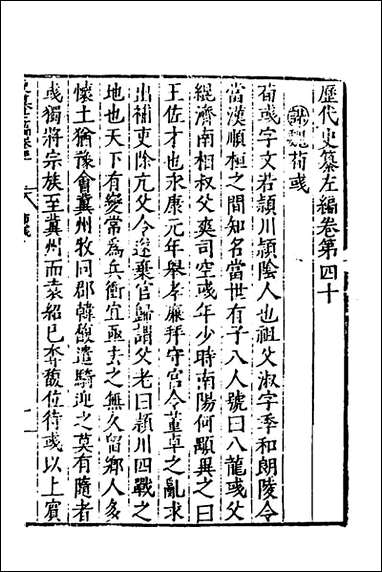 歷代史纂左編卷第四十
謀 魏 荀彧
荀彧字文若頴川頴陰人也祖父淑字季和朗陵令
當漢順桓之間知名當世有子八人號曰八龍彧父
緄濟南相叔父爽司空彧年少時南陽何顒異之曰
王佐才也永康元年舉孝廉拜守宮令董卓之亂求
出補吏除亢父令遂棄官歸謂父老曰頴川四戰之
地也天下有變常爲兵衝宜亟去之無久留鄉人多
懷土猶豫會冀州牧同郡韓馥遣騎迎之莫有隨者
彧獨將宗族至冀州而袁紹已奪馥位待彧以上賓